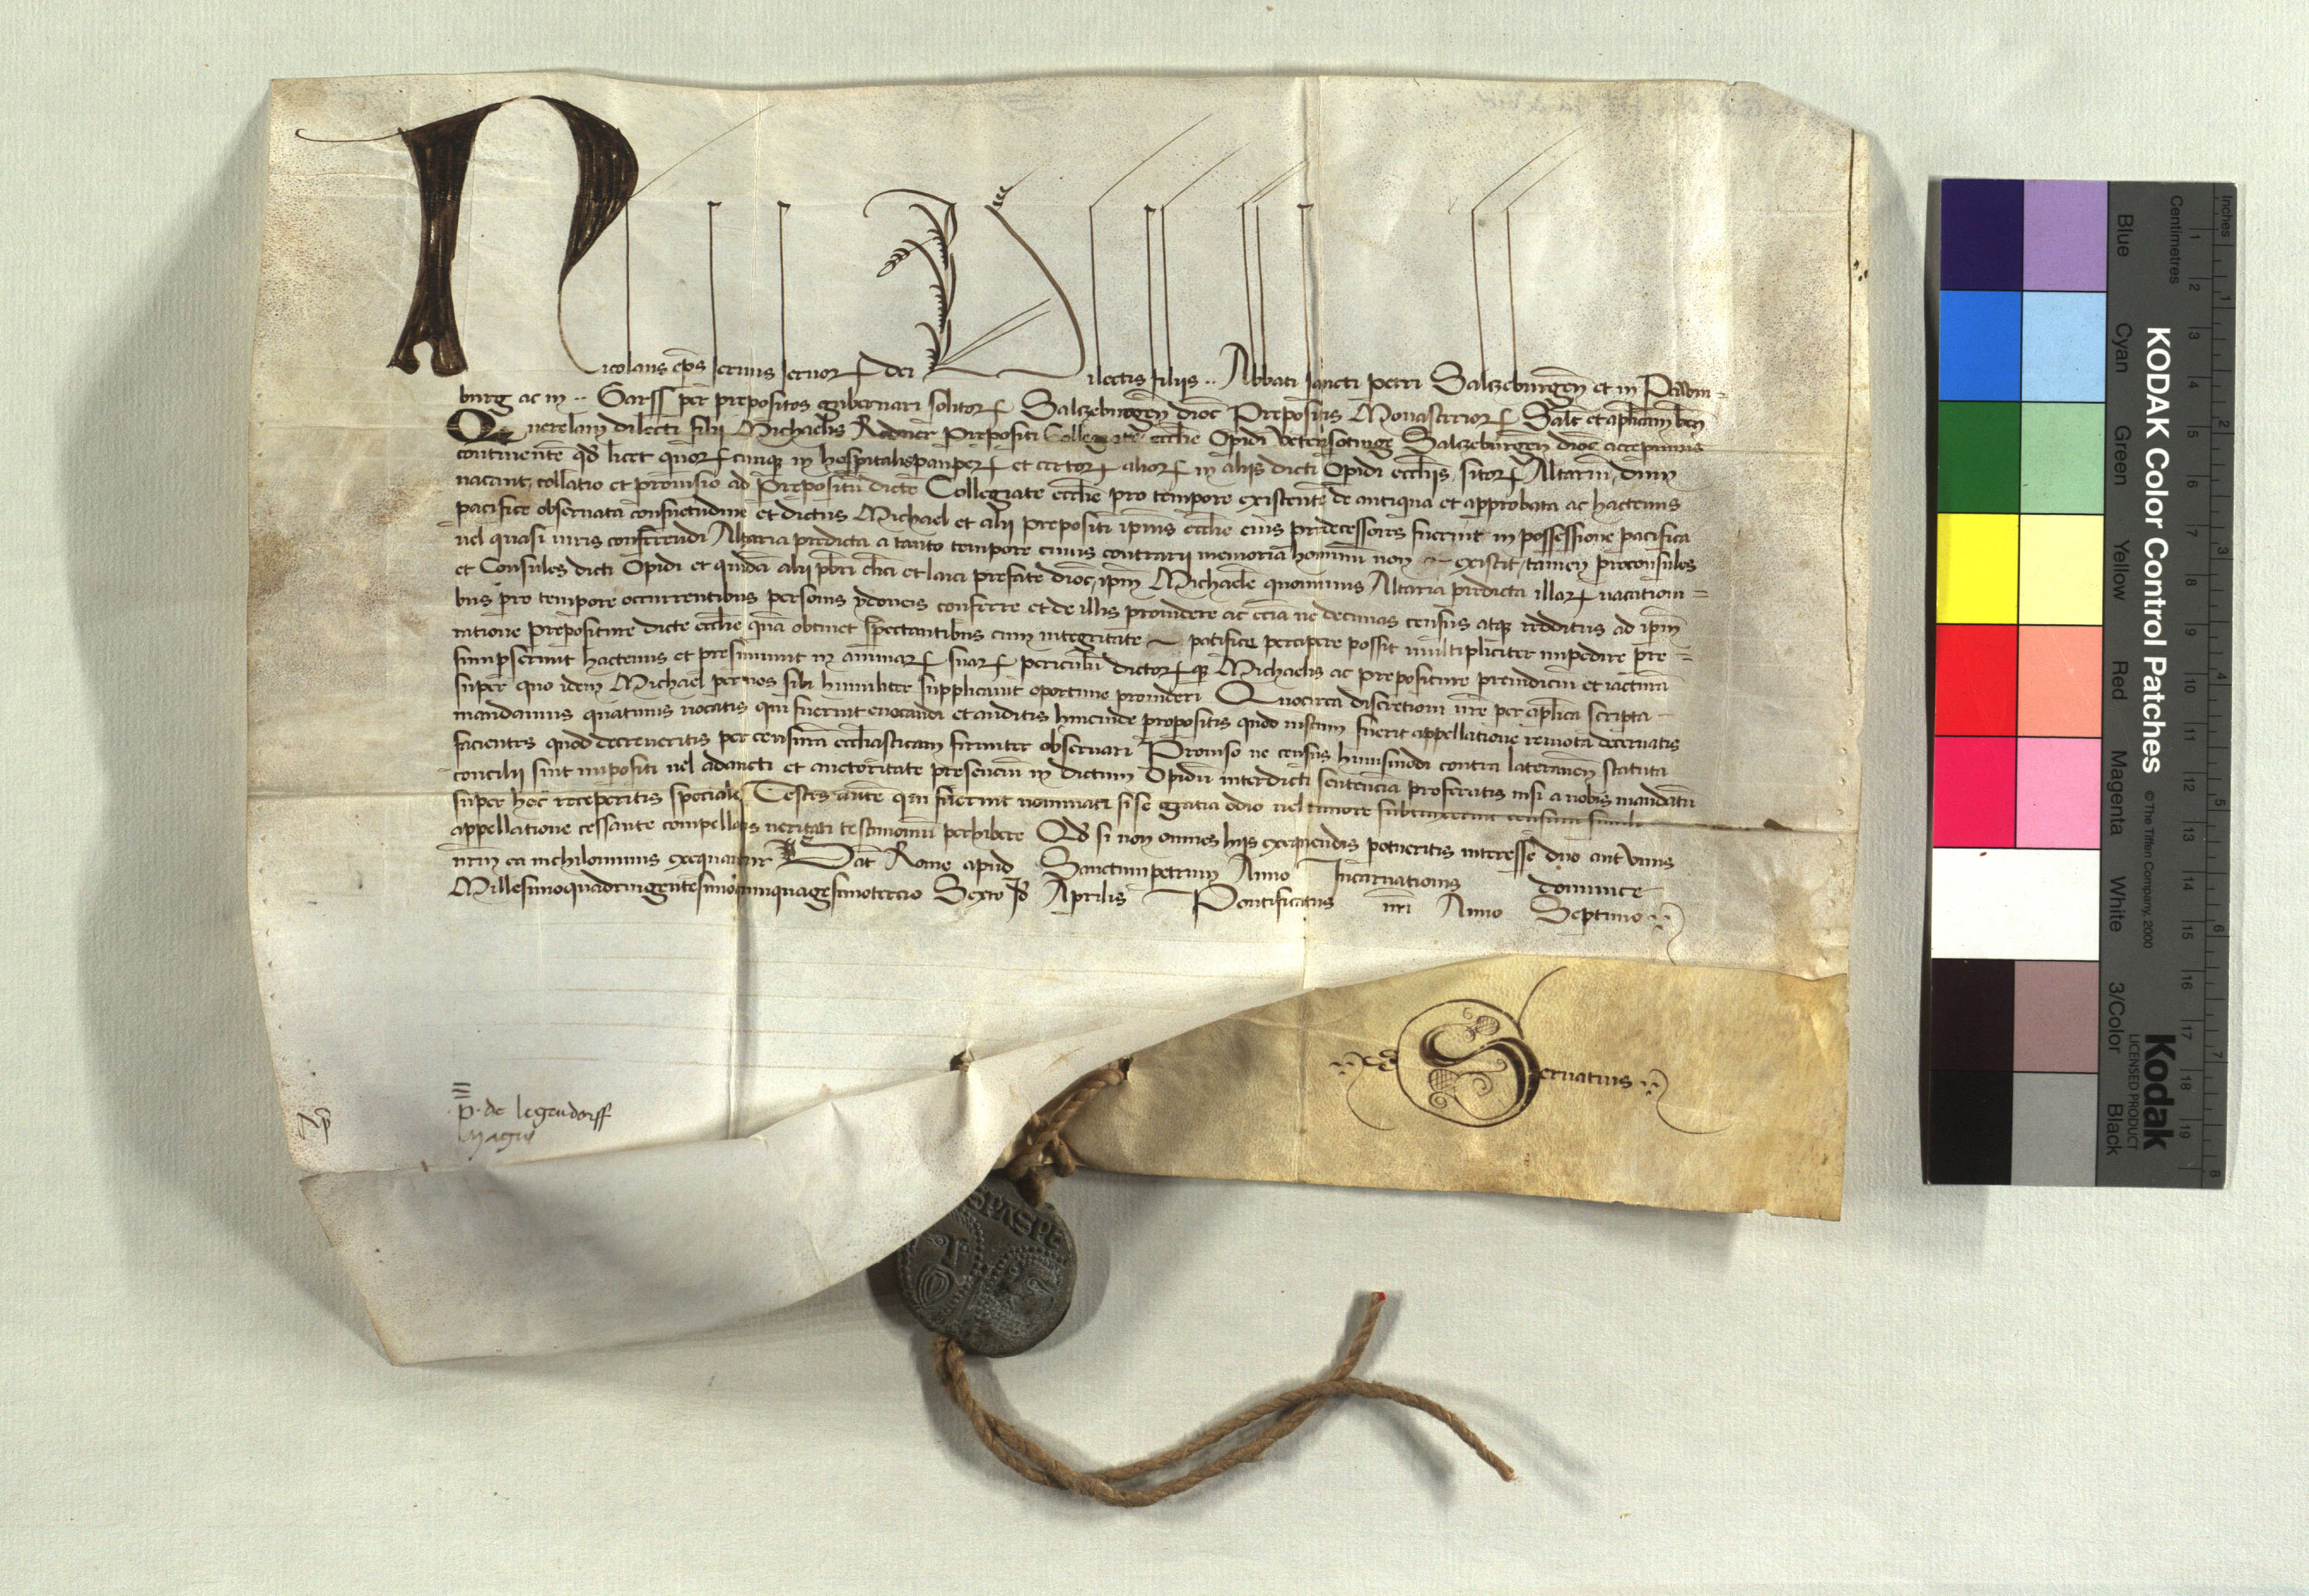 Nicolaus ep̄s seruus seruoꝝ dei Dilectis filiis ·· Abbati sancti petri Salzeburgeñ et in
burg ac in ·· Garss per prepositos gubernari solitoꝝ Salzeburgeñ dioc̄ Prepositis Monasterioꝝ Salt̄ et aplicam beñ
Querelam dilecti filii Michaelis Prepositi Collegiate ecclie Opidi Salzeburgeñ dioc̄ accepimus
continentē qd̄ licet quoꝝcunqꝫ in hospitalis pauperꝝ et certoꝝ alioꝝ in aliis dicti Opidi eccliis sitoꝝ Altariū dum
uacant, collatio et prouisio ad Prepositū dicte Collegiate ecclie pro tempore existentē de antiqua et approbata ac hactenus
pacifice obseruata consuetudine et dictus Michael et alii prepositi ipius ecclie eius predecessores fuerint in possessione pacifica
uel quasi iuris conferendi Altaria predicta a tanto tempore cuius contrarii memoria hominū non existit, tamen proconsules
et Consules dicti Opidi et quidā alii pbri clici et laici prefate dioc̄, ipm̄ Michaelē quominus Altaria predicta illaꝝ uacationi=
bus pro tempore occurrentibus personis ydoneis conferre et de illis prouidere ac ecia ne decimas census atqꝫ redditus ad ipm̄
ratione prepositure dicte ecclie quā obtinet spectantibus cum integritate pacifice percipere possit multipliciter impedire pre=
sumpserunt hactenus et presumunt in animaꝝ suaꝝ periculū dictoꝝqꝫ Michaelis ac prepositure preiudiciū et iacturā
super quo idem Michael per nos sibi humiliter supplicauit oportune prouideri Quocirca discretioni ur̄e per aplica scripta
mandamus quatinus uocatis qui fuerint euocandi et auditis hincinde propositis quod iustum fuerit appellatione remota decernatis
facientes quod decreueritis per censurā eccliasticam firmiter obseruari Prouiso ne census huiusmodi contra lateraneñ statuta
concilii sint impositi uel adaucti et auctoritate presenciū in dictum Opidū interdicti sentenciā proferatis nisi a nobis mandatū
super hoc receperitis speciale Testes autē qui fuerint nominati si se gratia odio uel timore subtraxerint censura simili
appellatione cessante compellatis ueritati testimoniū perhibere Qd̄ si non omnes hiis exequendis potueritis interesse duo aut unus
ur̄m ea nichilominus exequantur Dat̄ Rome apud Sanctumpetrum Anno Incarnationis dominice
Millesimoquadringentesimoquinquagesimotercio Sexto Id̄ Aprilis Pontificatus nr̄i Anno Septimo
Seruatius
p. de legendorff
KODAK Color Control Patches
© The Tiffen Company, 2000
Kodak
LICENSED PRODUCT
Inches
Centimetres
Blue Cyan Green Yellow Red Magenta White 3/Color Black
1 2 3 4 5 6 7 8 9 10 11 12 13 14 15 16 17 18 19
1 2 3 4 5 6 7 8